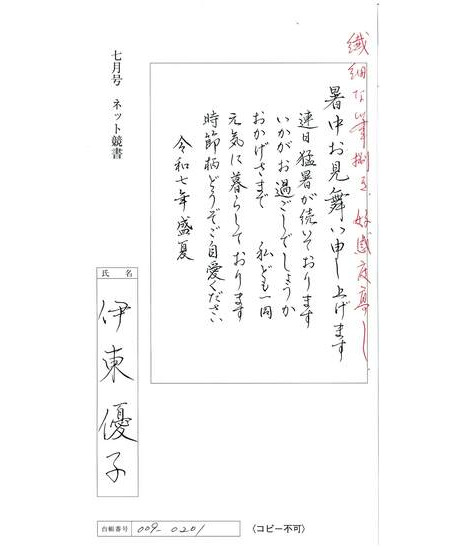 繊細な筆捌き、好感度高し
暑中お見舞い申し上げます
連日猛暑が続いております
いかがお過ごしでしょうか
おかげさまで　私ども一同
元気に暮らしております
時節柄どうぞご自愛ください
令和七年盛夏
七月号　ネット競書
氏名
伊東優子
台帳番号 009-0201
〈コピー不可〉